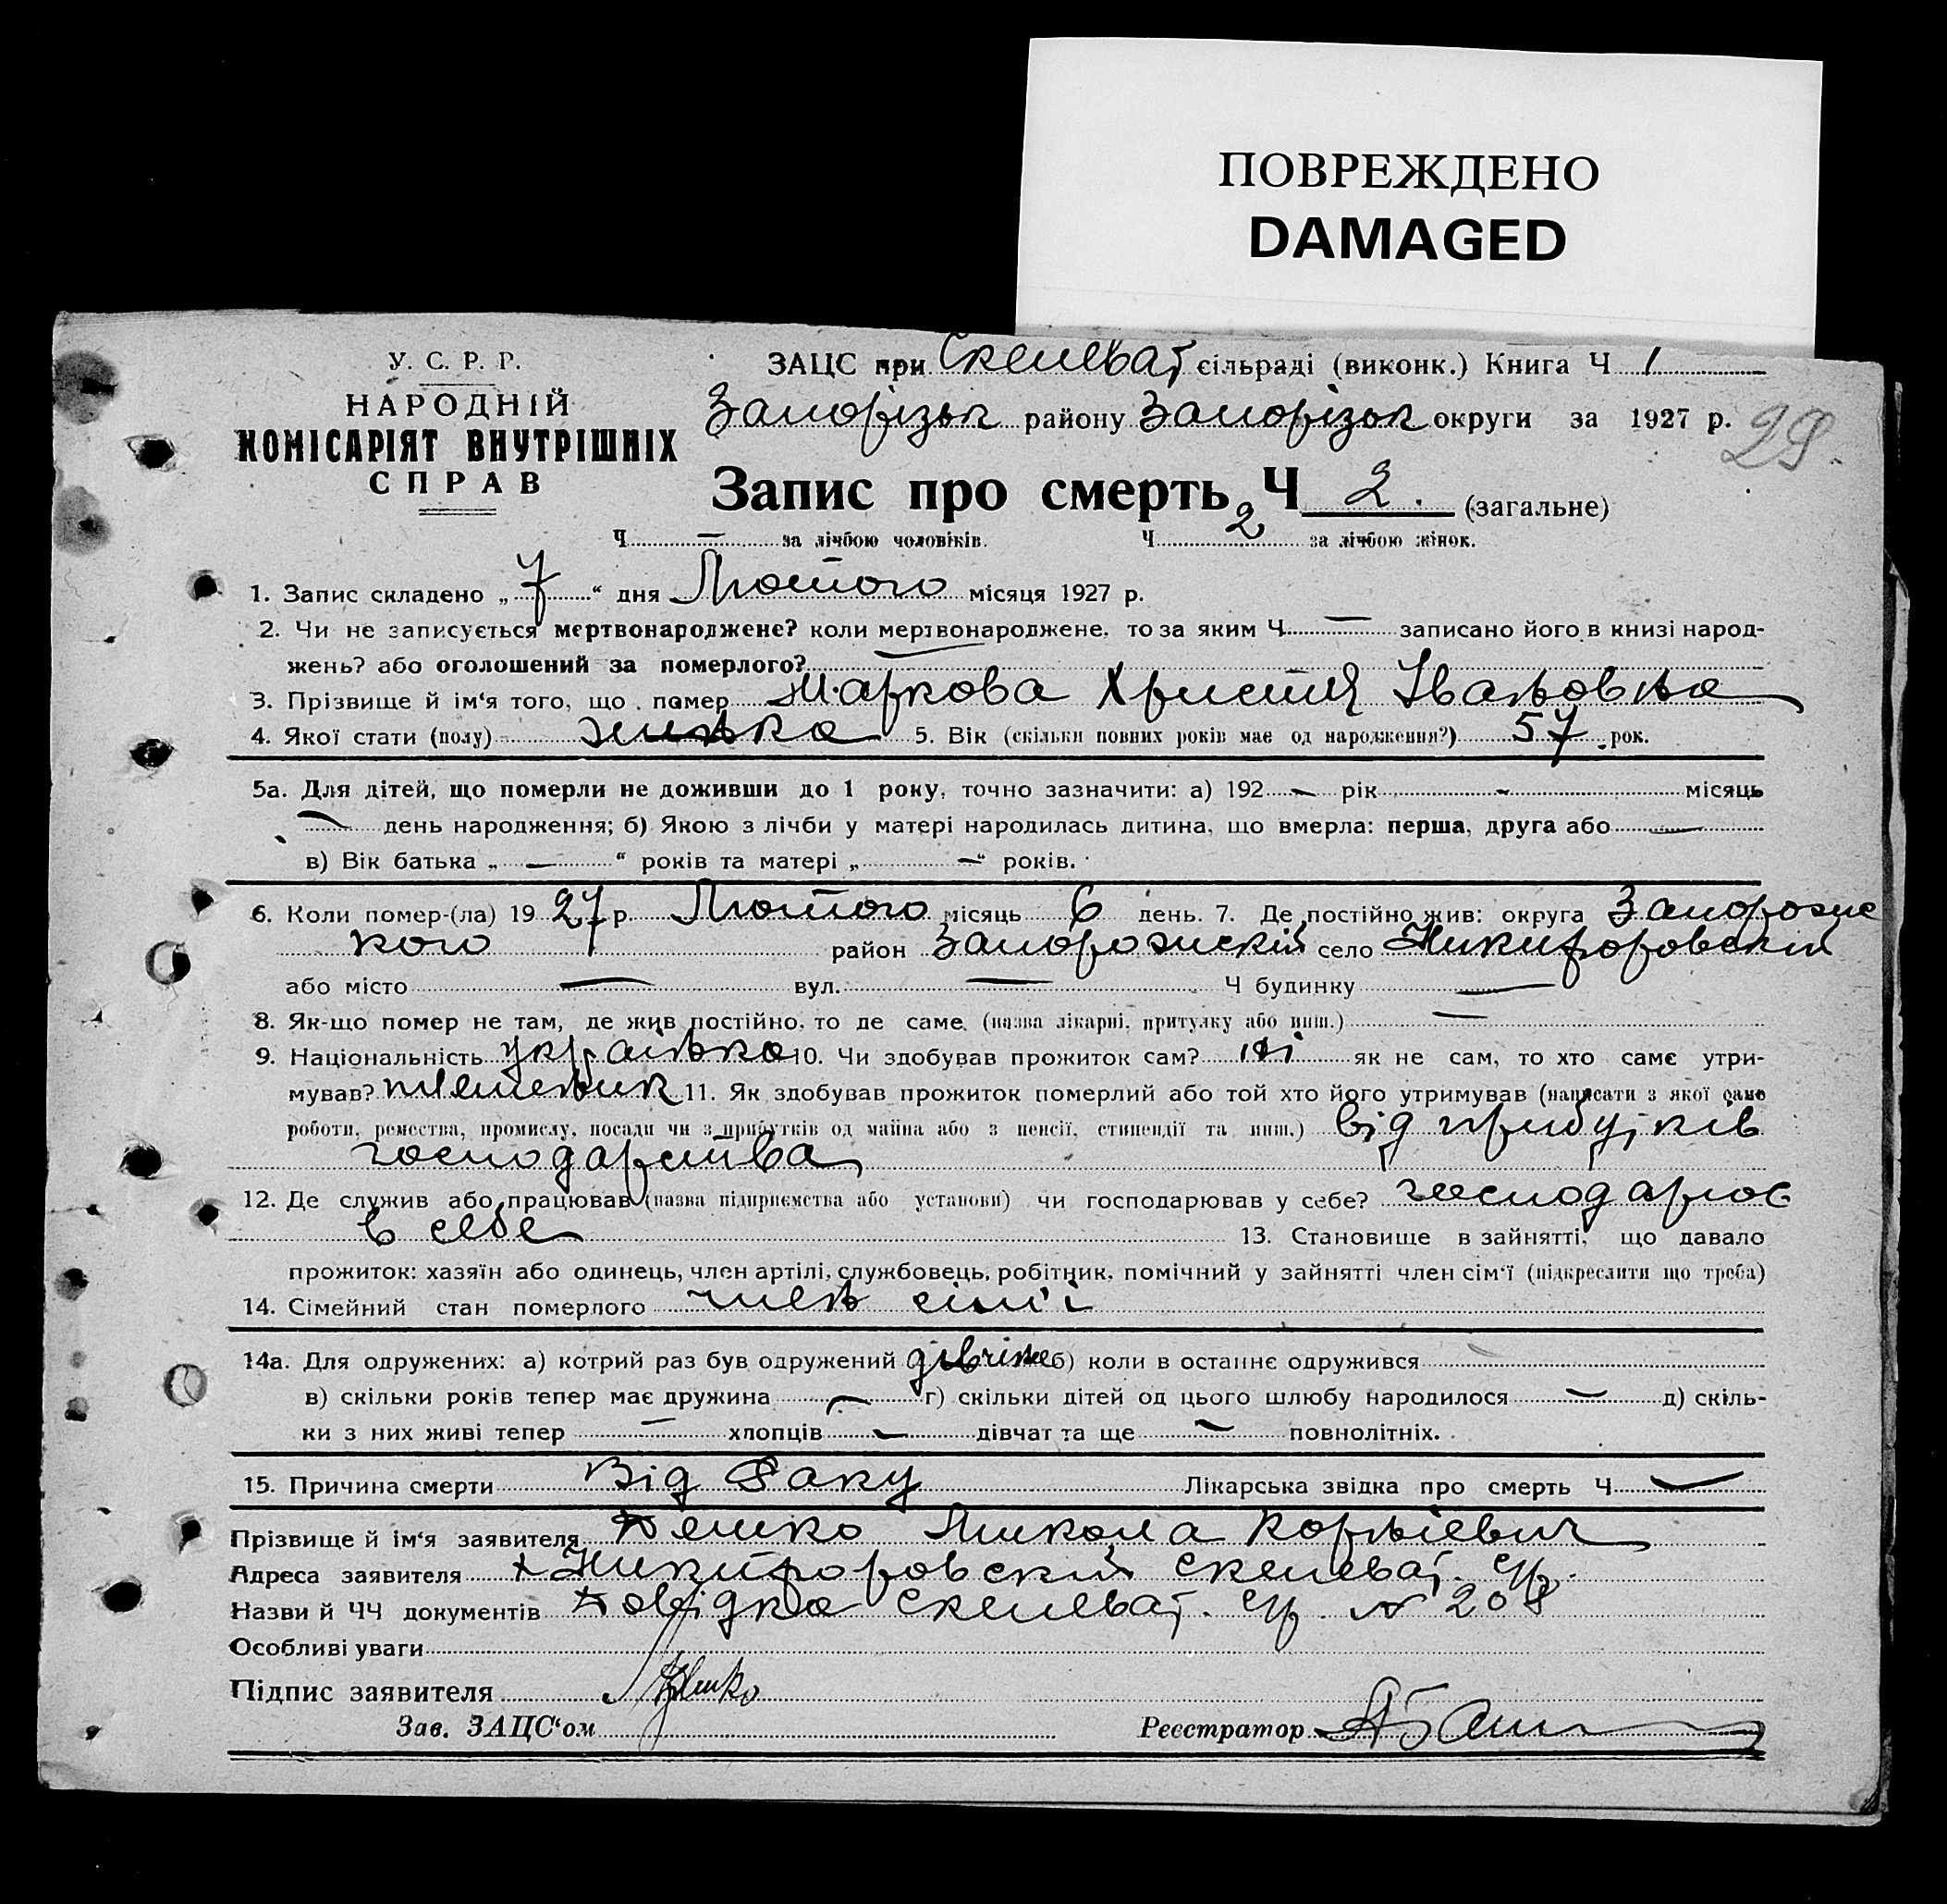 ПОВРЕЖДЕНО
DAMAGED
У. С. Р. Р.
НАРОДНІЙ
КОМІСАРІЯТ ВНУТРІШНІХ
СПРАВ
ЗАЦС при Скелеват сільраді (виконк.) Книга Ч 1
Запорізьк району Запорізьк округи за 1927 р.
29.
Запис про смерть Ч 2. (загальне)
Ч. — за лічбою чоловіків. Ч. 2 за лічбою жінок.
1. Запис складено „ 7 “ дня Лютого місяця 1927 р.
2. Чи не записується мертвонароджене? коли мертвонароджене, то за яким Ч. — записано його в книзі народ-
жень? або оголошений за померлого? —
3. Прізвище й ім‘я того, що помер Маркова Христия Івановна
4. Якої стати (полу) жинка 5. Вік (скільки повних років має од народження?) 57 рок.
5а. Для дітей, що померли не доживши до 1 року, точно зазначити: а) 192 — рік - місяць
— день народження; б) Якою з лічби у матері народилась дитина, що вмерла: перша, друга або —
в) Вік батька „ — “ років та матері „ — “ років.
6. Коли помер-(ла) 19 27 р. Лютого місяць 6 день. 7. Де постійно жив: округа Запорожс
кого район Запорожский село Никифоровский
або місто — вул. — Ч будинку —
8. Як-що помер не там, де жив постійно, то де саме (назва лікарні, притулку або инш.) —
9. Національність українка 10. Чи здобував прожиток сам? ні як не сам, то хто саме утри-
мував? племеник 11. Як здобував прожиток померлий або той хто його утримував (написати з якої саме
роботи, ремества, промислу, посади чи з прибутків од майна або з пенсії, стипендії та инш.) від прибутків
господарства
12. Де служив або працював (назва підприємства або установи) чи господарював у себе? господарює
в себе 13. Становище в зайнятті, що давало
прожиток: хазяїн або одинець, член артілі, службовець, робітник, помічний у зайнятті член сім‘ї (підкреслити що треба)
14. Сімейний стан померлого член сімї
14а. Для одружених: а) котрий раз був одружений б) коли в останнє одружився
в) скільки років тепер має дружина — г) скільки дітей од цього шлюбу народилося — д) скіль-
ки з них живі тепер — хлопців — дівчат та ще — повнолітніх.
15. Причина смерти Від Раку Лікарська звідка про смерть Ч. —
Прізвище й ім‘я заявителя Демко Микола Корнієвич
Адреса заявителя х Никифоровский Скелеват. с/р.
Назви й ЧЧ документів Довідка Скелеват. с/р. № 208
Особливі уваги
Підпис заявителя Демко
Зав. ЗАЦС‘ом Реєстратор